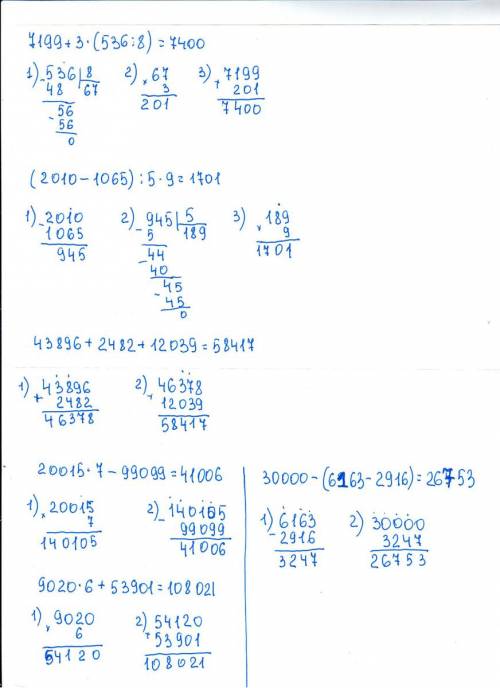 7199+3·(536:8)=7400
1) 536 8 2) 67 3) 7199
- 48 67 × 3 + 201
56 201 7400
- 56
0
(2010-1065):5·9=1701
1) 2010 2) 945 5 3) 189
- 1065 - 5 189 × 9
945 44 1701
- 40
45
- 45
0
43896+2482+12039=58417
1) 43896 2) 46378
+ 2482 + 12039
46378 58417
20015·7-99099=41006
1) 20015 2) 140105
× 7 - 99099
140105 41006
30000-(6163-2916)=26753
1) 6163 2) 30000
- 2916 3247
3247 26753
9020·6+53901=108021
1) 9020 2) 54120
× 6 + 53901
54120 108021